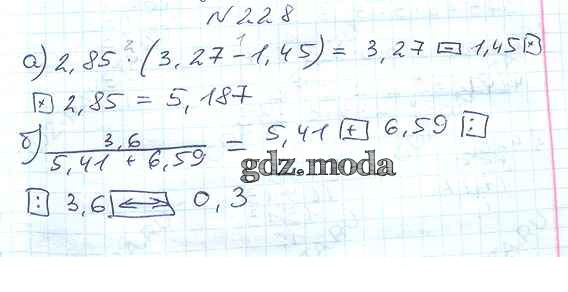 N 228
а) 2,85 · (3,27 - 1,45) = 3,27 [-] 1,45 [×]
[×] 2,85 = 5,187
б) 3,6 / (5,41 + 6,59) = 5,41 [+] 6,59 [:]
gdz.moda
[:] 3,6 [↔] 0,3